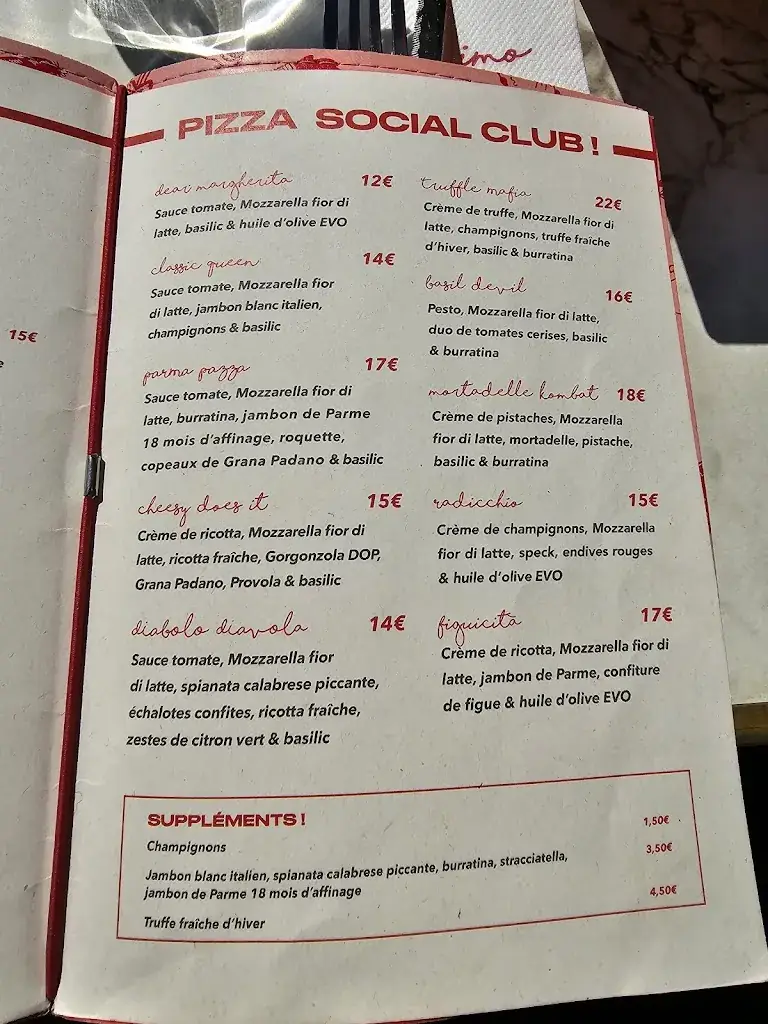 imo
15€
PIZZA SOCIAL CLUB !
dear margherita 12€
Sauce tomate, Mozzarella fior di
latte, basilic & huile d'olive EVO
classic queen 14€
Sauce tomate, Mozzarella fior
di latte, jambon blanc italien,
champignons & basilic
parma pazza 17€
Sauce tomate, Mozzarella fior di
latte, burratina, jambon de Parme
18 mois d'affinage, roquette,
copeaux de Grana Padano & basilic
cheesy does it 15€
Crème de ricotta, Mozzarella fior di
latte, ricotta fraîche, Gorgonzola DOP,
Grana Padano, Provola & basilic
diabolo diavola 14€
Sauce tomate, Mozzarella fior
di latte, spianata calabrese piccante,
échalotes confites, ricotta fraîche,
zestes de citron vert & basilic
truffle mafia 22€
Crème de truffe, Mozzarella fior di
latte, champignons, truffe fraîche
d'hiver, basilic & burratina
basil devil 16€
Pesto, Mozzarella fior di latte,
duo de tomates cerises, basilic
& burratina
mortadelle kombat 18€
Crème de pistaches, Mozzarella
fior di latte, mortadelle, pistache,
basilic & burratina
radicchio 15€
Crème de champignons, Mozzarella
fior di latte, speck, endives rouges
& huile d'olive EVO
figuicità 17€
Crème de ricotta, Mozzarella fior di
latte, jambon de Parme, confiture
de figue & huile d'olive EVO
SUPPLÉMENTS !
Champignons 1,50€
Jambon blanc italien, spianata calabrese piccante, burratina, stracciatella, 3,50€
jambon de Parme 18 mois d'affinage
Truffe fraîche d'hiver 4,50€